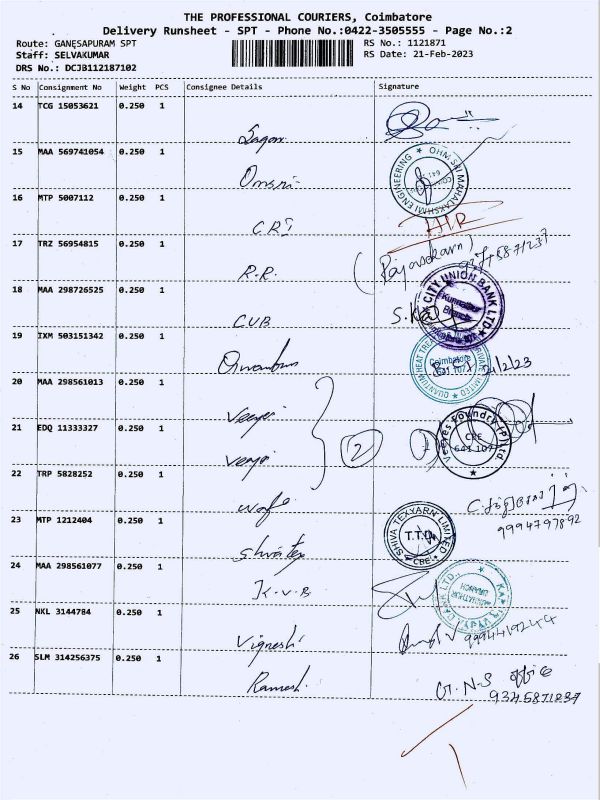 THE PROFESSIONAL COURIERS, Coimbatore
Delivery Runsheet - SPT - Phone No.:0422-3505555 - Page No.:2
Route: GANESAPURAM SPT
Staff: SELVAKUMAR
DRS No.: DCJB112187102
RS No.: 1121871
RS Date: 21-Feb-2023
S No Consignment No Weight PCS Consignee Details Signature
14 TCG 15053621 0.250 1
Sagar
15 MAA 569741054 0.250 1
Omsri
OHM SRI MAHALAKSHMI ENGINEERING
16 MTP 5007112 0.250 1
C.R.I
17 TRZ 56954815 0.250 1
R.R.
(Rajasekarn)
18 MAA 298726525 0.250 1
CUB
CITY UNION BANK LTD
Branch
19 IXM 503151342 0.250 1
Coimbatore
641 107
20 MAA 298561013 0.250 1
21 EDQ 11333327 0.250 1
2
Veejes Foundry (P) Ltd
CBE
641 107
22 TRP 5828252 0.250 1
9994797892
23 MTP 1212404 0.250 1
Shivatex
SHIVA TEXYARN LIMITED
T.T.D.
CBE
24 MAA 298561077 0.250 1
K.V.B
25 NKL 3144784 0.250 1
Vignesh
9994419244
26 SLM 314256375 0.250 1
Ramesh
G.N.S office
9345871237